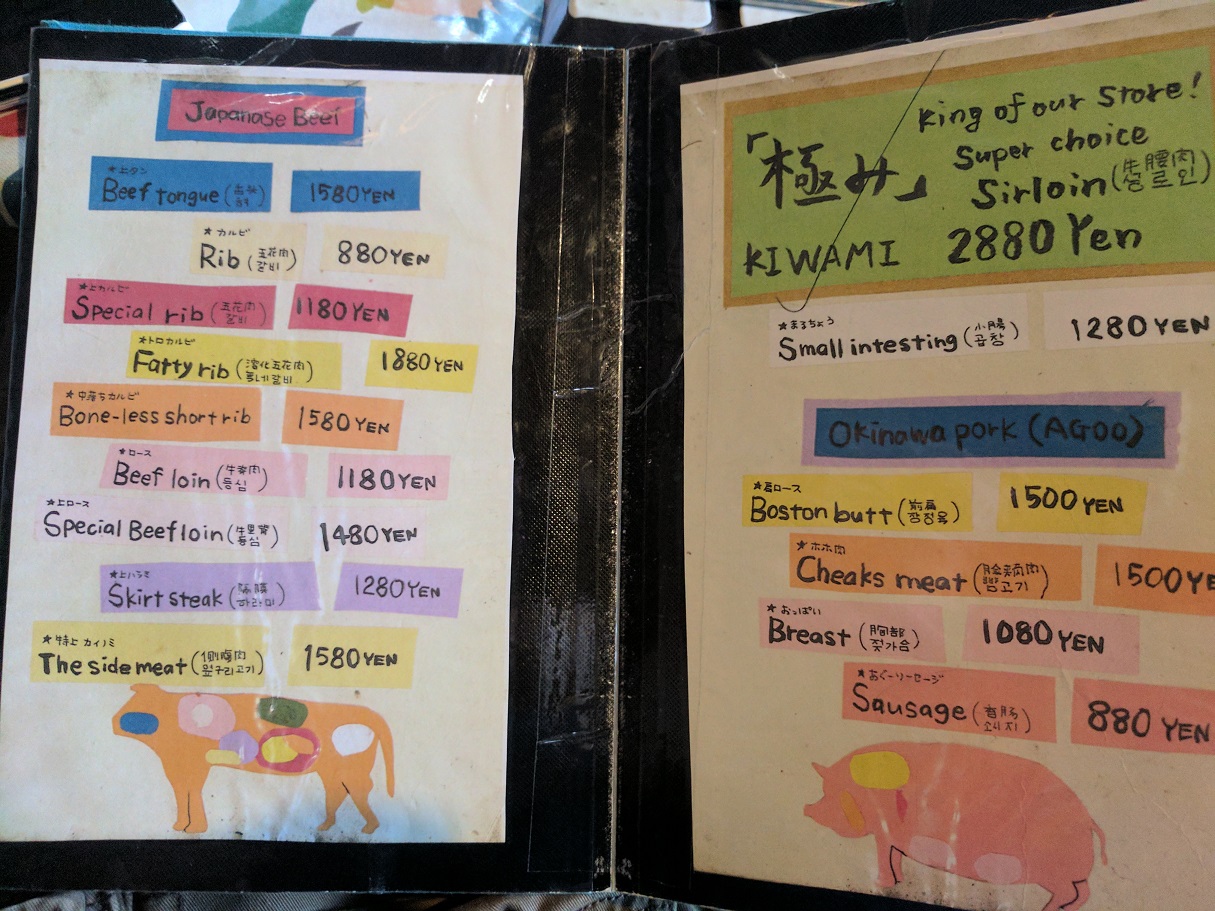 Japanase Beef
★上タン
Beef tongue (舌头 혀) 1580YEN
★カルビ
Rib (五花肉 갈비) 880YEN
★上カルビ
Special rib (五花肉 갈비) 1180YEN
★トロカルビ
Fatty rib (溶化五花肉 갈비) 1880YEN
★中落ちカルビ
Bone-less short rib 1580YEN
★ロース
Beef loin (牛脊肉 등심) 1180YEN
★上ロース
Special Beef loin (牛里脊 등심) 1480YEN
★上ハラミ
Skirt steak (하라미) 1280YEN
★特上カイノミ
The side meat (側腹肉 옆구리고기) 1580YEN
King of our Store!
「極み」 Super choice
Sirloin (牛腰肉 썰로인)
KIWAMI 2880 Yen
★まるちょう
Small intesting (小腸 곱창) 1280YEN
Okinawa pork (AGOO)
★肩ロース
Boston butt (前肩 목정육) 1500YEN
★ホホ肉
Cheaks meat (脸颊肉 뺨고기) 1500YE
★おっぱい
Breast (胸部 젖가슴) 1080YEN
★あぐーソーセージ
Sausage (香肠 소시지) 880YEN